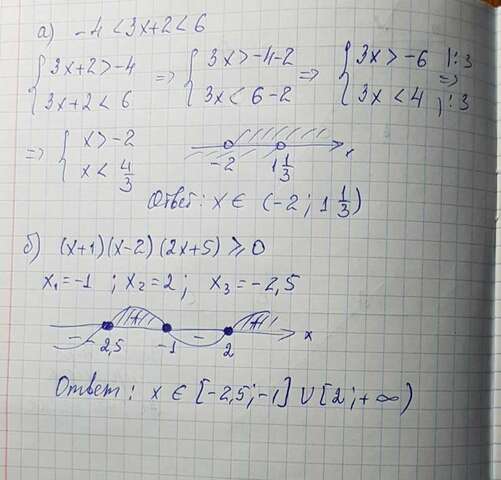 а) -4 < 3x+2 < 6
{ 3x+2 > -4 => { 3x > -4-2 => { 3x > -6 |:3 =>
{ 3x+2 < 6 { 3x < 6-2 { 3x < 4 |:3
=> { x > -2
{ x < 4/3
-2 1 1/3 x
Ответ: x ∈ (-2; 1 1/3)
б) (x+1)(x-2)(2x+5) ⩾ 0
x₁=-1 ; x₂=2 ; x₃=-2,5
- + - + x
-2,5 -1 2
Ответ: x ∈ [-2,5;-1] ∪ [2;+∞)